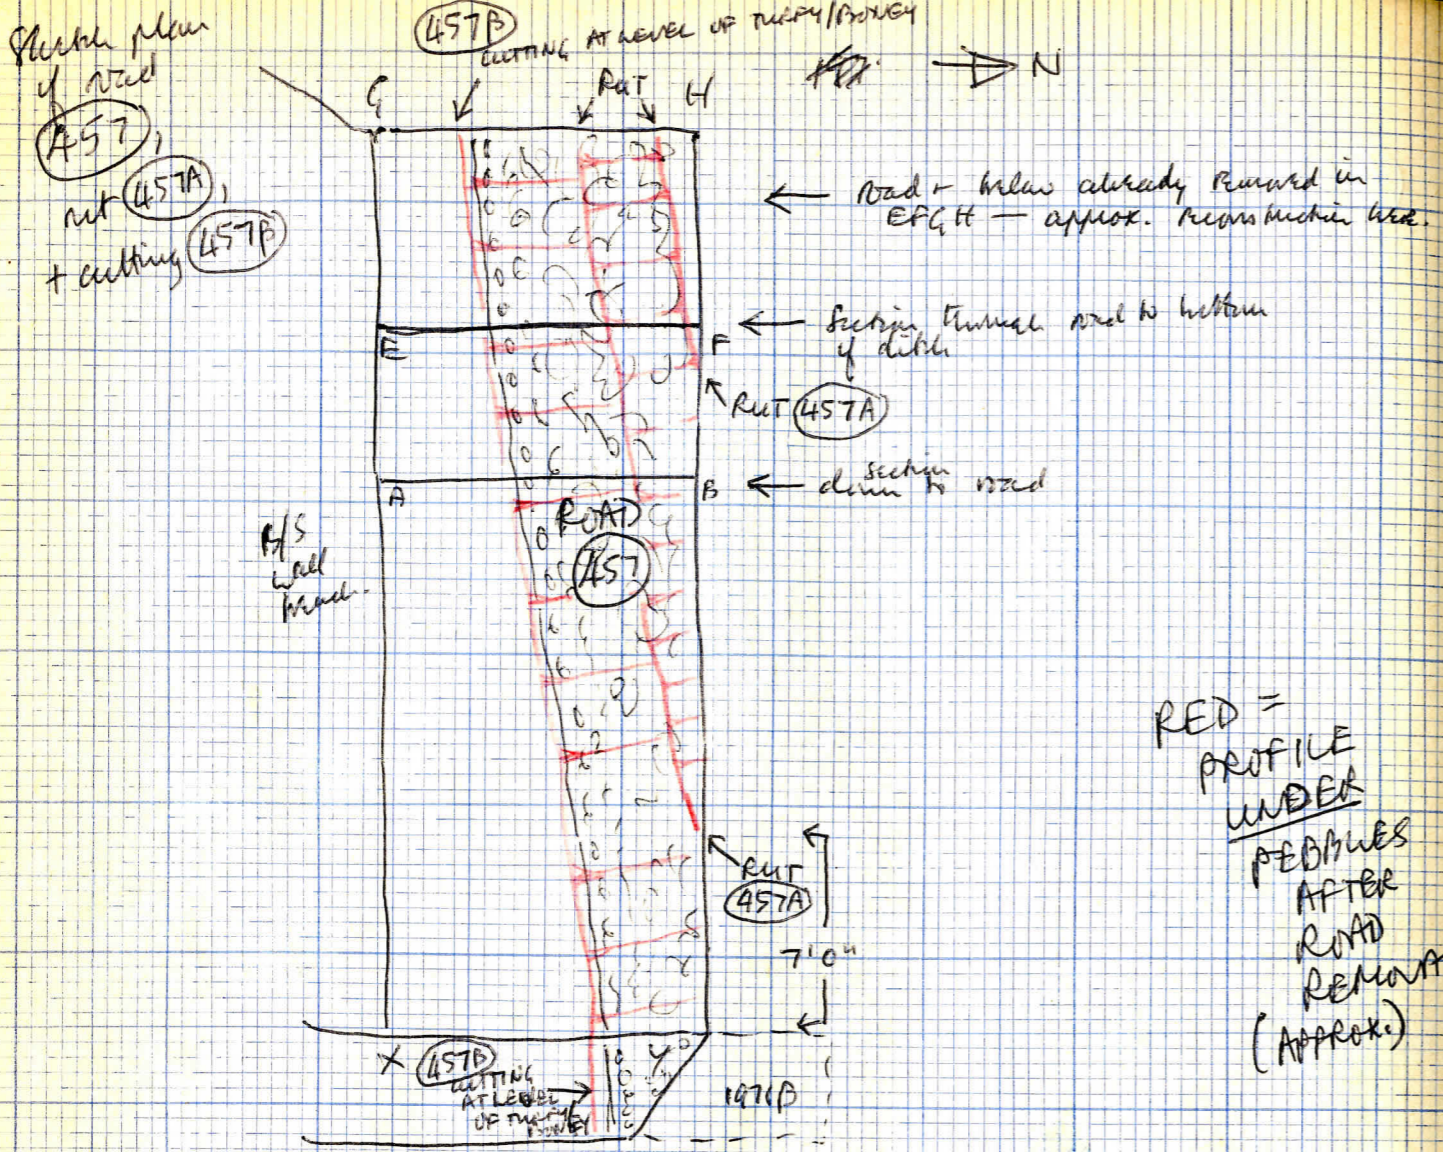 Sketch plan
of road
457,
rut 457A,
+ cutting 457B
457B
CUTTING AT LEVEL OF TURFY/BONEY
RUT
N
G
H
road + below already removed in
EFGH — approx. reconstruction here.
Section through road to bottom
of ditch
E
F
RUT 457A
section
down to road
A
B
ROAD
457
B/S
wall
RED =
PROFILE
UNDER
PEBBLES
AFTER
ROAD
REMOVA
(APPROX.)
RUT
457A
7'0"
X
457B
CUTTING
AT LEVEL
OF TURFY/
BONEY
1971B